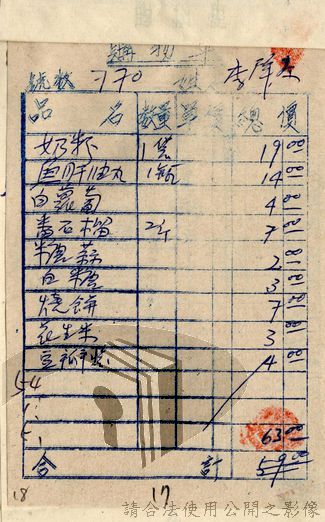 購物單
號數 770 姓名 李
品名 數量 單價 總價
奶粉 1袋 19 00
魚肝油丸 1瓶 14 00
白蘿蔔 4 00
番石榴 2斤 7 00
糖蒜 2 00
白糖 3 00
燒餅 7 00
花生米 3 00
豆瓣醬 4 00
54
1.
5. 63 00
合計 59 00
18 17
請合法使用公開之影像